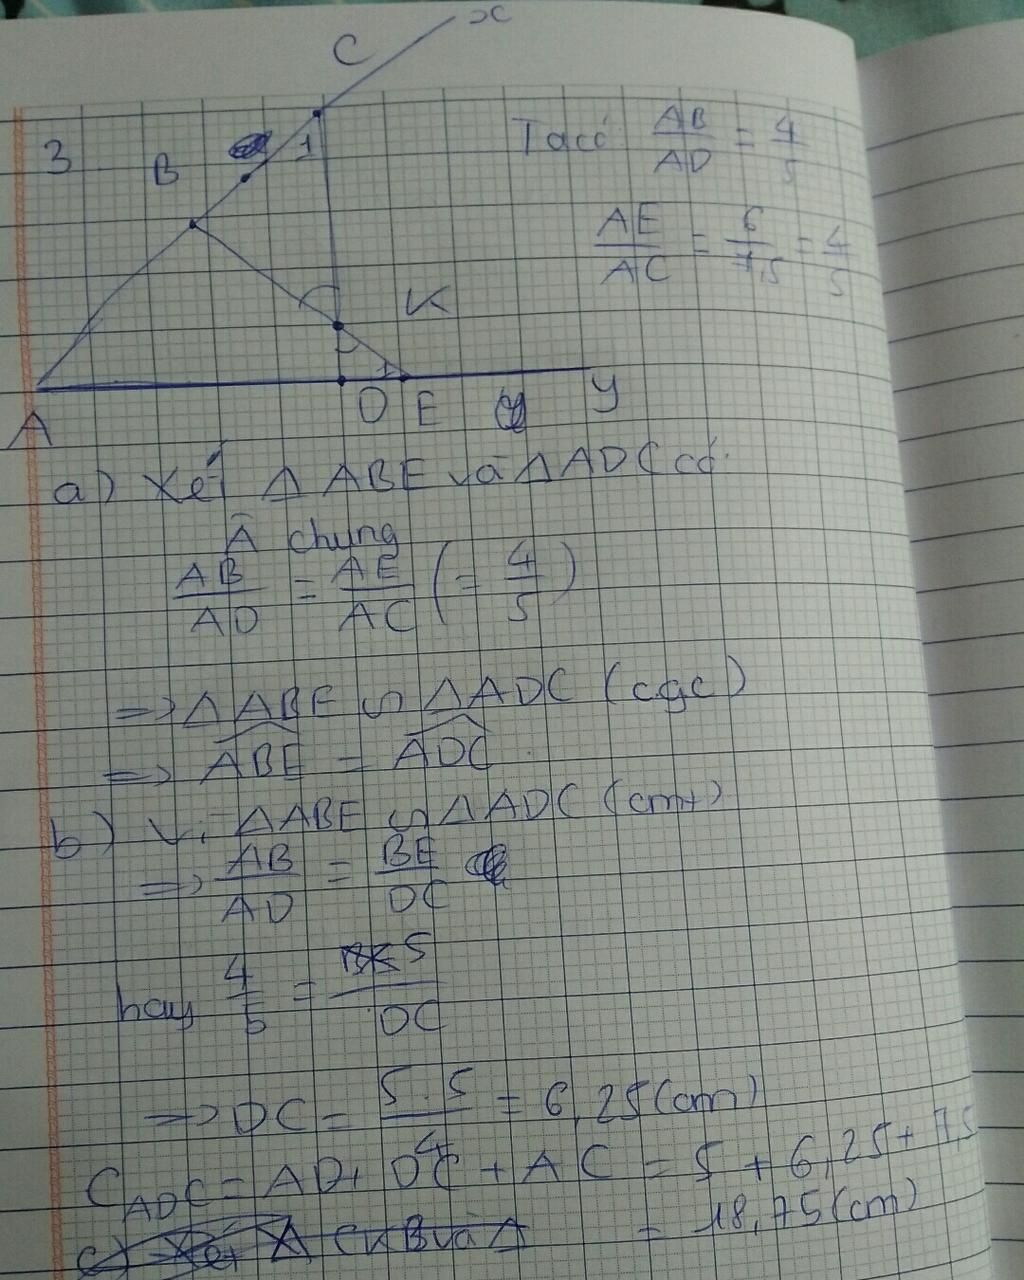 x
C
3 B 1 Ta có AB/AD = 4/5
AE/AC = 6/7,5 = 4/5
K
1
A D E y
a) Xét Δ ABE và Δ ADC có:
Â chung
AB/AD = AE/AC (= 4/5)
=> Δ ABE ∽ Δ ADC (cgc)
=> ABE = ADC
b) Vì Δ ABE ∽ Δ ADC (cmt)
=> AB/AD = BE/DC
hay 4/5 = 5/DC
=> DC = 5.5/4 = 6,25 (cm)
C ADC = AD + DC + AC = 5 + 6,25 + 7,5
= 18,75 (cm)